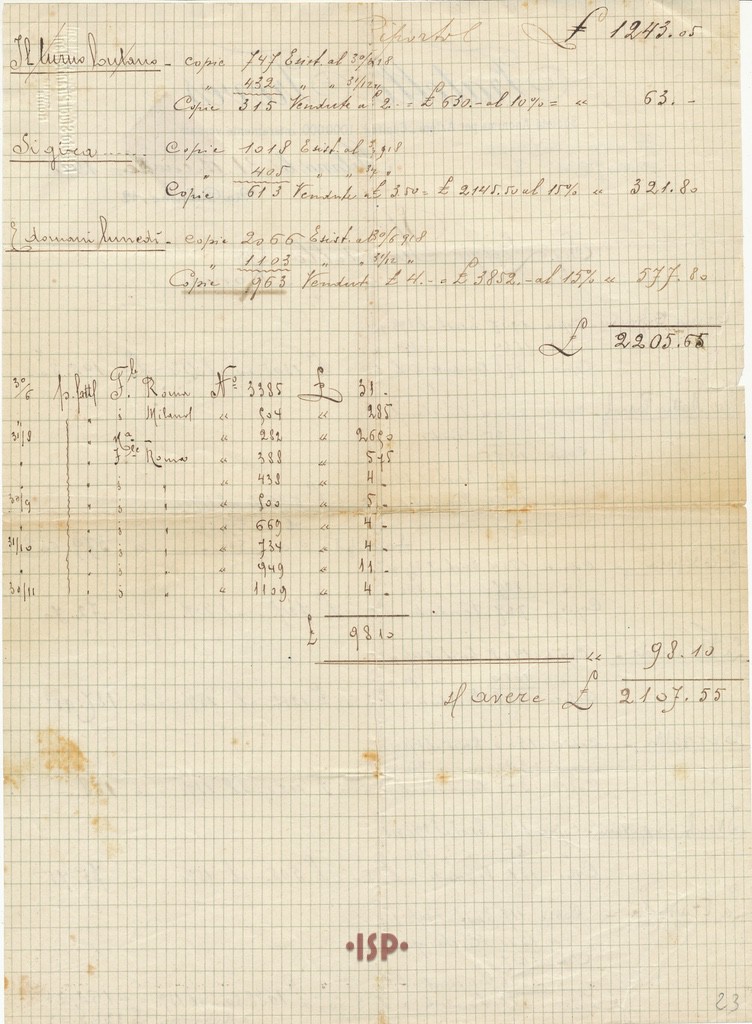 Riporto £ 1243.05
Il turno lontano - copie 747 Esist. al 30/6 18
" 432 " " 31/12 "
Copie 315 Vendute a £ 2. - = £ 630. - al 10% = " 63. -
Signora ....... Copie 1018 Esist. al 918
" 405 " " 31/ "
Copie 613 Vendute a £ 3.50 = £ 2145.50 al 15% " 321.80
E domani lunedì - copie 2066 Esist. al 30/6 918
" 1103 " " 31/12 "
Copie 963 Vendute £ 4. - a £ 3852. - al 15% " 577.80
£ 2205.65
30/6 p. fatt F. Roma No 3385 £ 31.
" " Milano " 504 " 285
31/8 " " 282 " 2690
" " Roma " 388 " 575
" " " 438 " 4 -
30/9 " " " 500 " 5 -
" " " 669 " 4 -
31/10 " " " 734 " 4 -
" " " 949 " 11 -
30/11 " " " 1109 " 4 -
£ 98.10
" 98.10
avere £ 2107.55
•ISP•
23